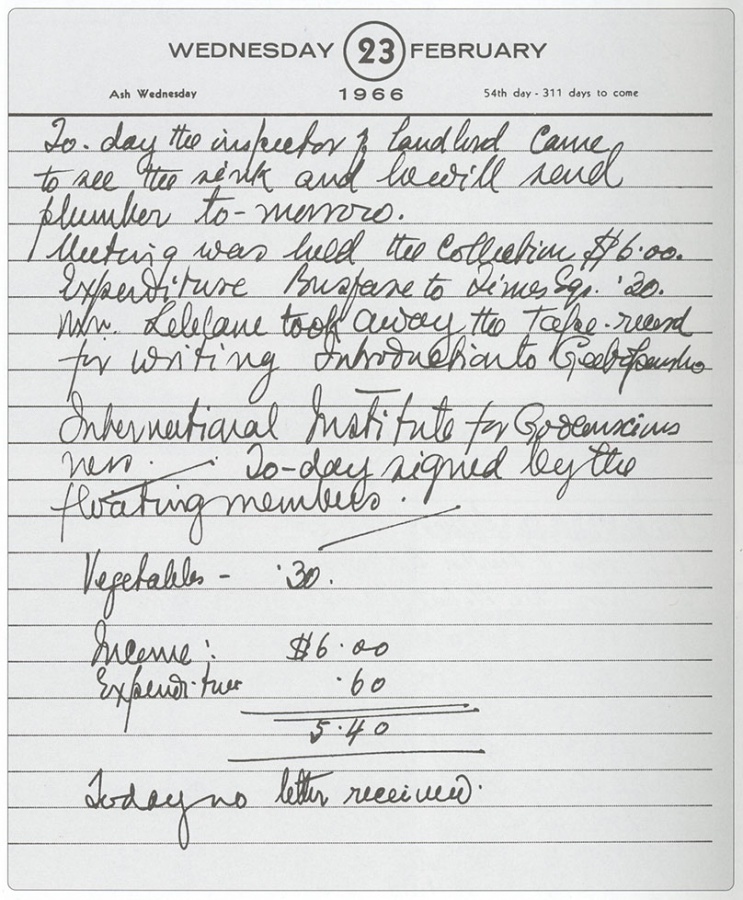 WEDNESDAY 23 FEBRUARY
Ash Wednesday 1966 54th day - 311 days to come
To-day the inspector of landlord came
to see the sink and he will send
plumber to-morrow.
Meeting was held the collection $6.00.
Expenditure Busfare to Times Sqr. .30.
Mr. took away the Tape-record
for writing Introduction to
International Institute for Godconscious
ness. To-day signed by the
floating members.
Vegetables - .30.
Income: $6.00
Expenditure .60
5.40
Today no letter received.